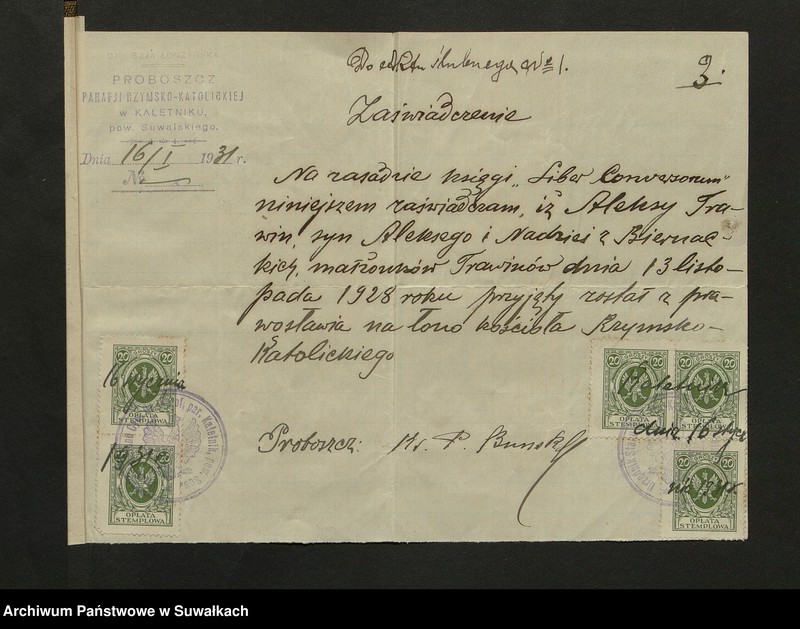 Do aktu ślubnego No 1.
3.
DIECEZJA ŁOMŻYŃSKA
PROBOSZCZ
PARAFJI RZYMSKO-KATOLICKIEJ
w KALETNIKU,
pow. Suwalskiego.
Dnia 16/I 1931 r.
No
Zaświadczenie
Na zasadzie księgi „Liber Conversorum"
niniejszem zaświadczam, iż Aleksy Tra-
win, syn Aleksego i Nadziei z Biernac-
kich, małżonków Trawinów dnia 13 listo-
pada 1928 roku przyjęty został z pra-
wosławia na łono kościoła Rzymsko-
Katolickiego
Proboszcz: Ks. P.
20 20
16 stycznia
OPŁATA
STEMPLOWA
20 20
1931 r.
OPŁATA
STEMPLOWA
20 20 20 20
OPŁATA
STEMPLOWA
dnia 16 stycz
20 20
OPŁATA
STEMPLOWA
Archiwum Państwowe w Suwałkach